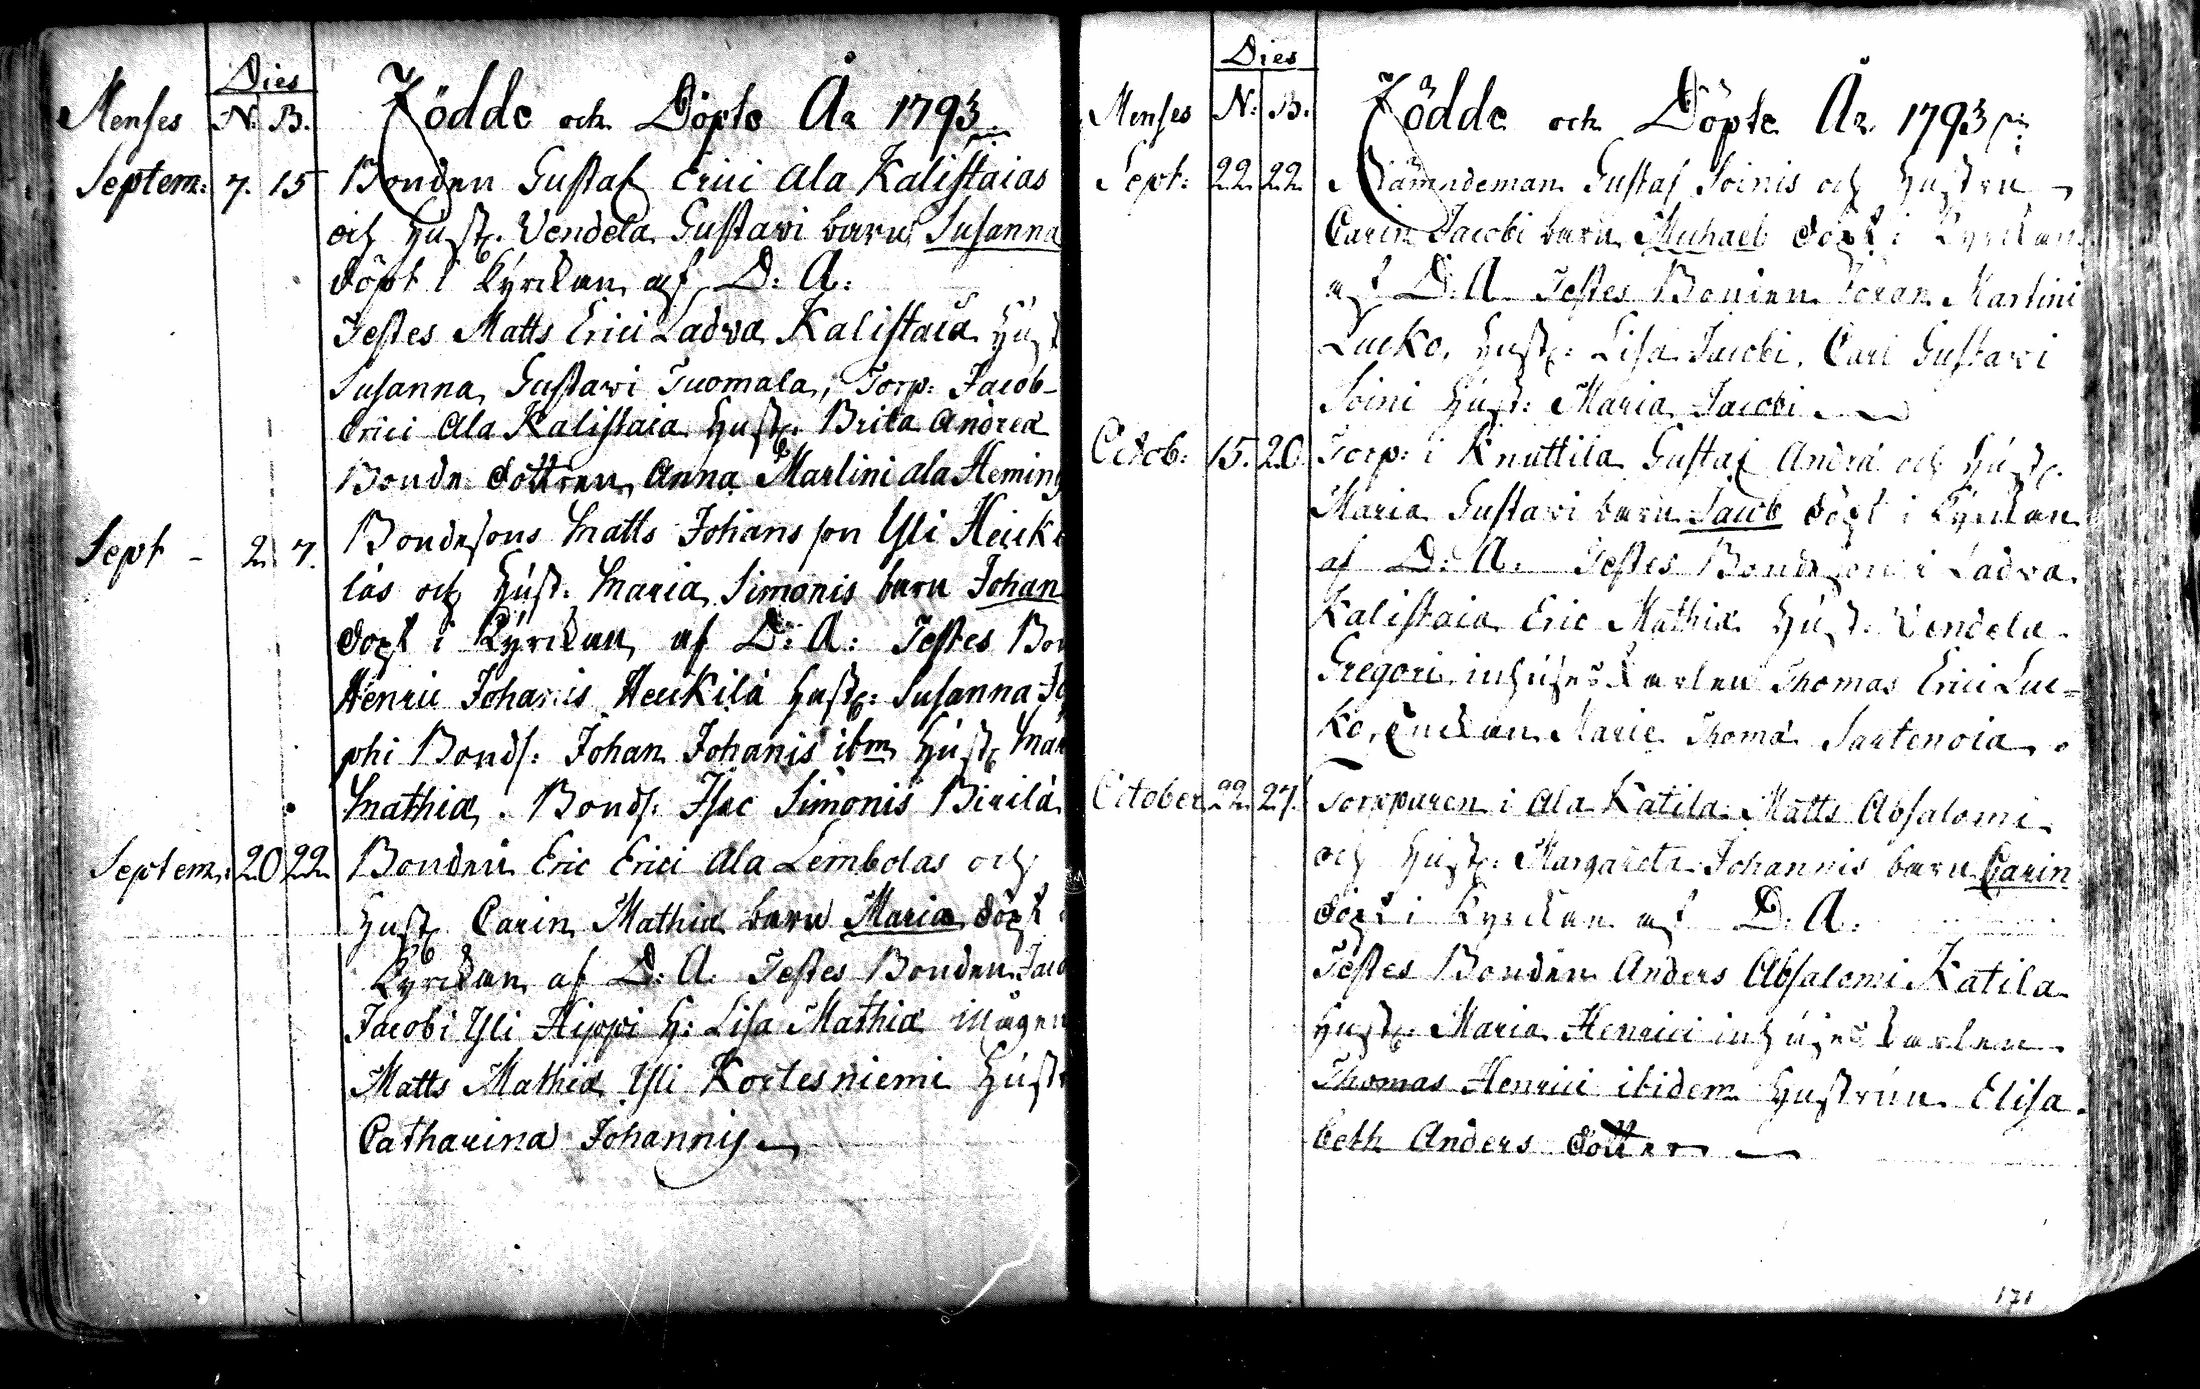 Dies
Menses N. B. Födde och Döpte År 1793
Septem: 7. 15 Bonden Gustaf Erici Ala Kalistaias
och Hust. Vendela Gustavi barn Susanna
döpt i Kyrckan af D: A:
Testes Matts Erici Ladva Kalistaia Hust
Susanna Gustavi Tuomala, Torp: Jacob
Erici Ala Kalistaia Hustr. Brita Andreæ
Bonde dottren Anna Martini ala Heming
Sept - 2. 7. Bondesons Matts Johans son Yli Heicki
läs och Hust. Maria Simonis barn Johan
döpt i Kyrckan af D: A: Testes Bon
Henric Johanis Heickilä Hustr: Susanna Jo
phi Bonds: Johan Johanis ibm Hustr Mar
Mathiæ. Bonds. Isac Simonis Birilä
Septem: 20 22 Bonden Eric Erici Ala Lembolas och
Hustr Carin Mathiæ barn Maria döpt i
Kyrckan af D: A. Testes Bonden Jaco
Jacobi Yli Hippi H: Lisa Mathiæ
Matts Mathiæ Yli Kortesniemi Hustr
Catharina Johannis
Dies
Menses N: B. Födde och Döpte År 1793
Sept: 22 22 Nämndeman Gustaf Soinis och Hustru
Carin Jacobi barn Michael döpt i Kyrckan
af D: A. Testes Bonden Göran Martini
Lucko, Hustr: Lisa Jacobi, Carl Gustavi
Soini Hust: Maria Jacobi
Octob: 15. 20 Torp: i Knuttila Gustaf Andræ och Hustr.
Maria Gustavi barn Jacob döpt i Kyrckan
af D: A. Testes Bondeson i Ladva
Kalistaia Eric Mathiæ Hust. Vendela
Gregori, inhuses Karlen Thomas Erici Luc=
ko, Enckan Marie Thomæ Sartenoia
October 22 27. Torpparen i Ala Katila Matts Absalomi
och Hustr: Margareta Johannis barn Carin
döpt i Kyrckan af D: A.
Testes Bonden Anders Absalomi Katila
Hustr: Maria Henrici inhuses Karlen
Thomas Henrici ibidem Hustrun Elisa
beth Anders dotter
171